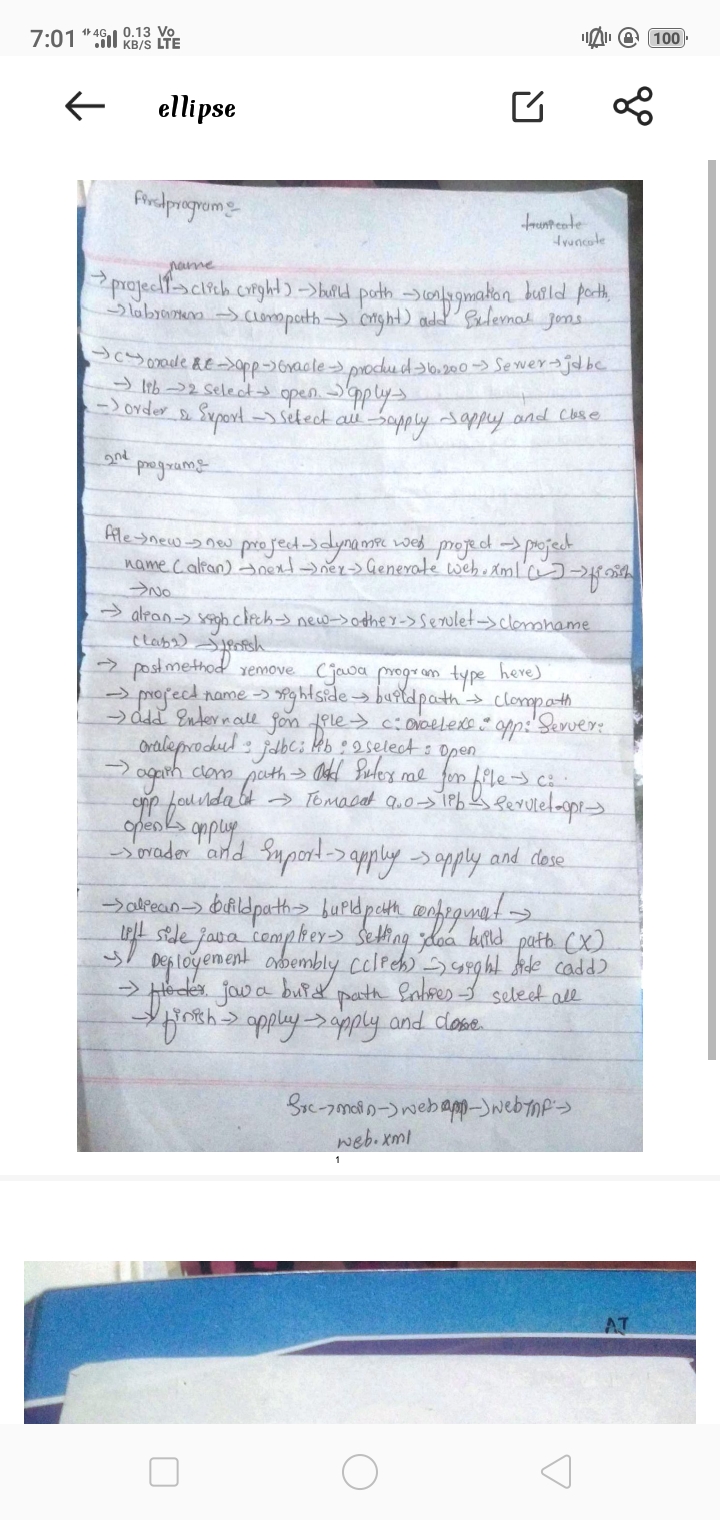 7:01 4G 0.13 KB/S Vo LTE 100
ellipse
firstprogram:-
truncate
name
→ project → click (right) → build path → configmation build path
→ → classpath → (right) add External jars
→ C → oracle → app → oracle → product → → Server → jdbc
→ lib → 2 select → open → apply →
→ order & Export → select all → apply → apply and close
2nd program:-
file → new → new project → dynamic web project → project
name (alean) → next → nex → Generate web.xml (✓) → finish
→ No
→ alean → click → new → other → Servlet → classname
(lab2) → finish
→ postmethod remove (java program type here)
→ project name → rightside → buildpath → classpath
→ add file → c: app: Server:
jdbc: lib: 2 select: open
→ again class path → add jar file → c:
app → Tomacat 9.0 → lib → Servlet-api →
open → apply
→ orader and Export → apply → apply and close
→ → buildpath → buildpath →
left side java complier → setting build path (X)
→ Deployement (click) → right side (add)
→ java build path Entries → select all
→ finish → apply → apply and close.
Src → main → webapp → webINF →
web.xml
1
AJ